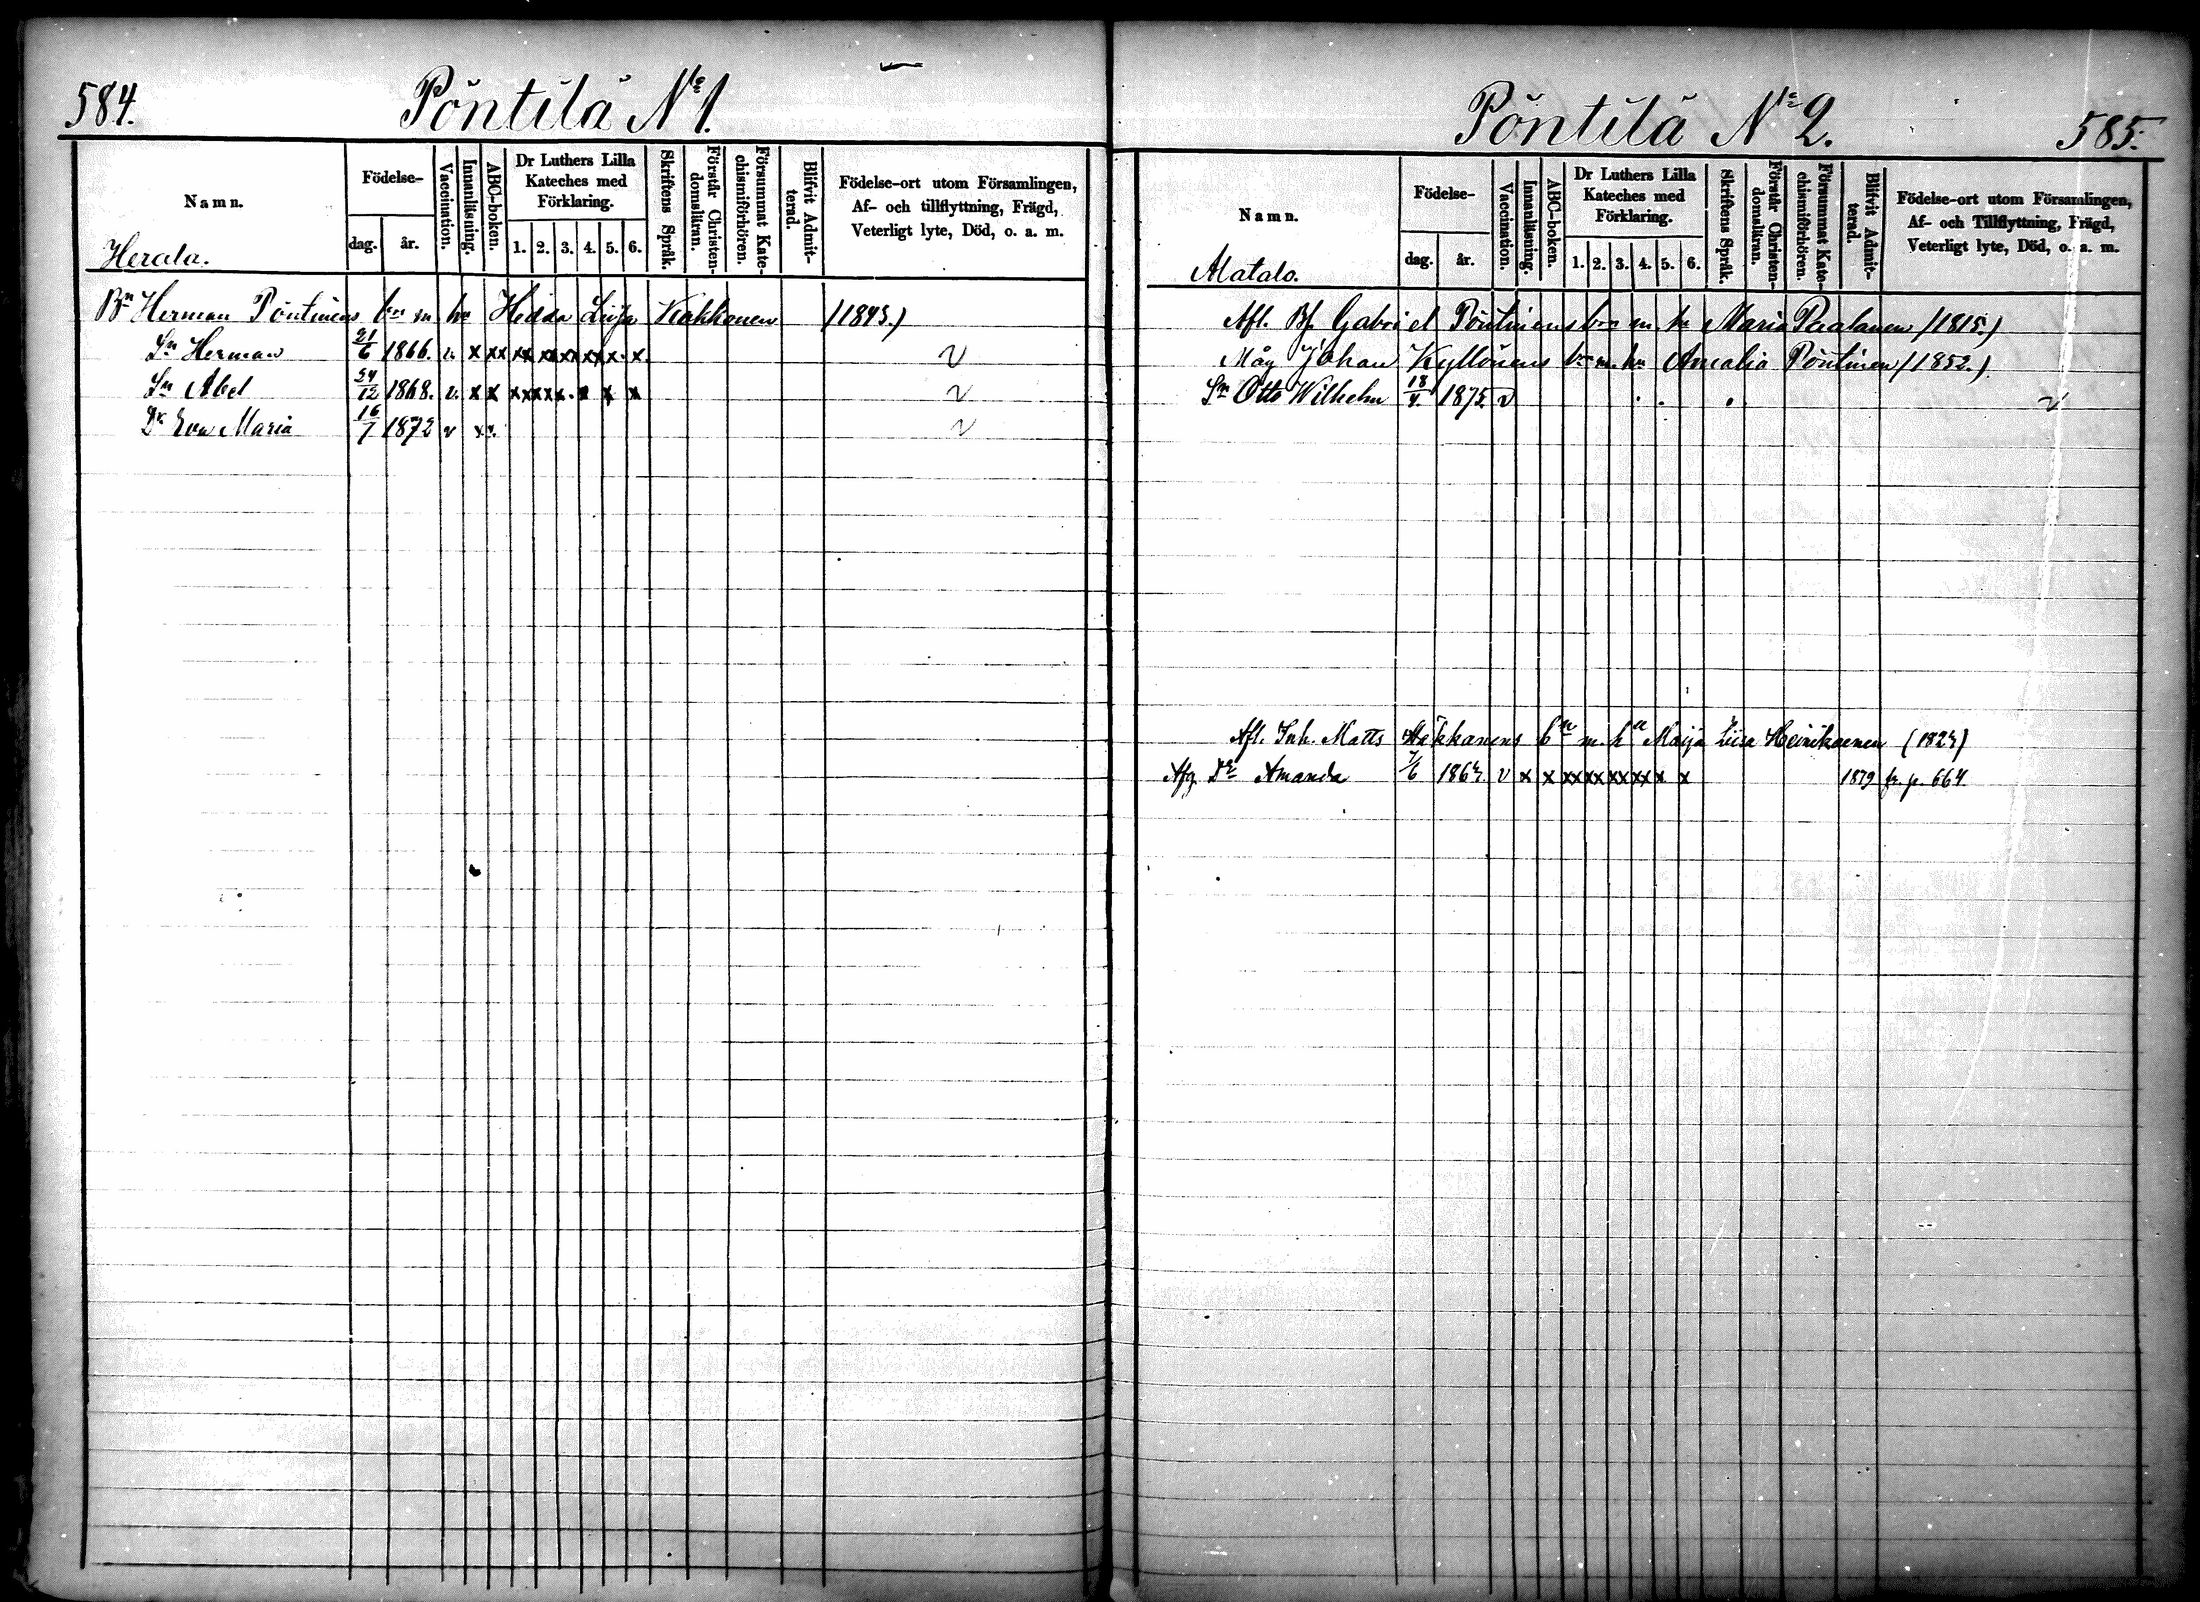 584.
Pöntilä No 1.
Namn.
Födelse-
dag.
år.
Vaccination.
Innanläsning.
ABC-boken.
Dr Luthers Lilla
Kateches med
Förklaring.
1. 2. 3. 4. 5. 6.
Skriftens Språk.
Förstår Christen-
domsläran.
Försummat Kate-
chismiförhören.
Blifvit Admit-
terad.
Födelse-ort utom Församlingen,
Af- och tillflyttning, Frägd,
Veterligt lyte, Död, o. a. m.
Herala.
Bn Herman Pöntinens bn m. hu Hedda Liisa Kakkonen (1843.)
Sn Herman 21/6 1866. v. x xx xx xx xx xx x. x. v
Sn Abel 24/12 1868. v. x x xx xx x. x x x v
Dr Eva Maria 16/7 1872 v x. v
Pöntilä No 2.
585.
Namn.
Födelse-
dag.
år.
Vaccination.
Innanläsning.
ABC-boken.
Dr Luthers Lilla
Kateches med
Förklaring.
1. 2. 3. 4. 5. 6.
Skriftens Språk.
Förstår Christen-
domsläran.
Försummat Kate-
chismiförhören.
Blifvit Admit-
terad.
Födelse-ort utom Församlingen,
Af- och Tillflyttning, Frägd,
Veterligt lyte, Död, o. a. m.
Matalo.
Afl. Bf. Gabriel Pöntinens bn m. hu Maria Paalanen (1815.)
Måg Johan Kyllönens bn m. hu Amalia Pöntinen (1852.)
Sn Otto Wilhelm 18/4. 1875. v v
Afl. Inh. Matts Häkkänens bn m. ha Maija Liisa Heinikainen (1824)
Afg. Dr Amanda 7/6 1864. v x x xx xx xx xx x x 1879 fr. p. 664.